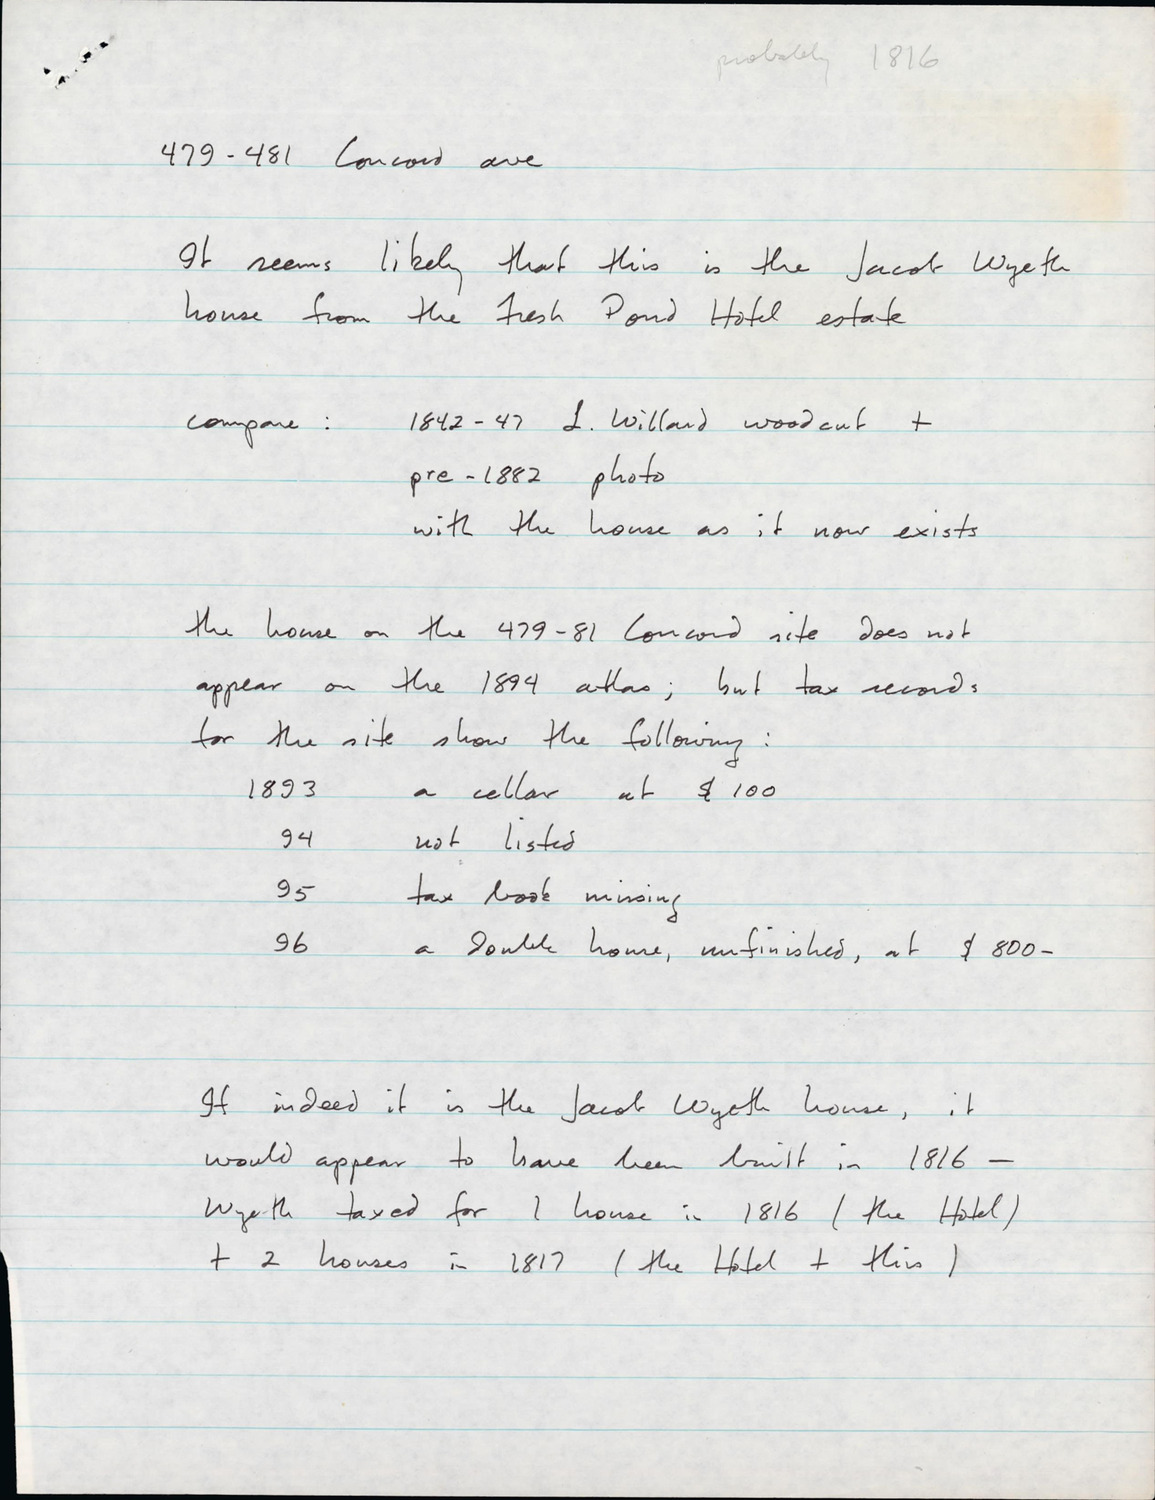 probably 1816
479-481 Concord ave
It seems likely that this is the Jacob Wyeth
house from the Fresh Pond Hotel estate
compare : 1842-47 L. Willard woodcut +
pre-1882 photo
with the house as it now exists
the house on the 479-81 Concord site does not
appear on the 1894 atlas; but tax records
for the site show the following:
1893 a cellar at $100
94 not listed
95 tax book missing
96 a double house, unfinished, at $800-
If indeed it is the Jacob Wyeth house, it
would appear to have been built in 1816 —
Wyeth taxed for 1 house in 1816 (the Hotel)
+ 2 houses in 1817 (the Hotel + this)